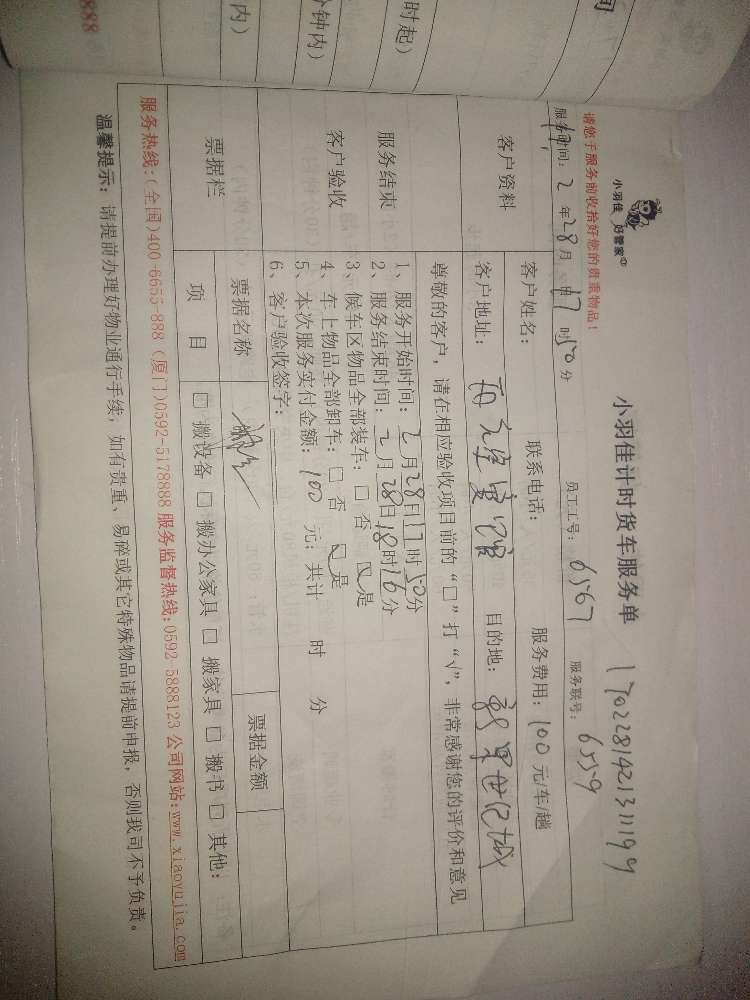 小羽佳 好管家
小羽佳计时货车服务单
17022814213111199
请您于服务前收拾好您的贵重物品!
员工工号: 6567
服务联号: 6559
服务时间: 17年 2月 28日 17时 50分
客户资料
客户姓名:
联系电话:
服务费用: 100 元/车/趟
客户地址:
目的地: 世纪城
尊敬的客户, 请在相应验收项目前的“□”打“√”, 非常感谢您的评价和意见
服务结束
客户验收
1、服务开始时间: 2月28日17时50分
2、服务结束时间: 2月28日18时16分
3、候车区物品全部装车: □ 否 ☑ 是
4、车上物品全部卸车: □ 否 ☑ 是
5、本次服务实付金额: 100 元; 共计 时 分
6、客户验收签字:
票据栏
票据名称
票据金额
项 目
□ 搬设备 □ 搬办公家具 □ 搬家具 □ 搬书 □ 其他:
服务热线:(全国)400-6655-888 (厦门)0592-5178888 服务监督热线:0592-5888123 公司网站:www.xiaoyujia.com
温馨提示: 请提前办理好物业通行手续, 如有贵重、易碎或其它特殊物品请提前申报, 否则我司不予负责。
时起)
分钟内)
内)
888